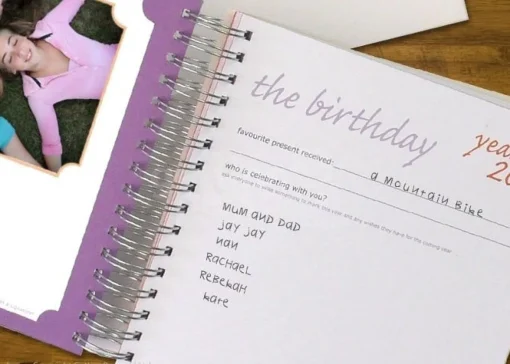 the birthday
year
20
favourite present received:
a mountain Bike
who is celebrating with you?
ask everyone to write something to thank you and any wishes they have for the coming year
mum and dad
jay jay
nan
Rachael
Rebekah
kate